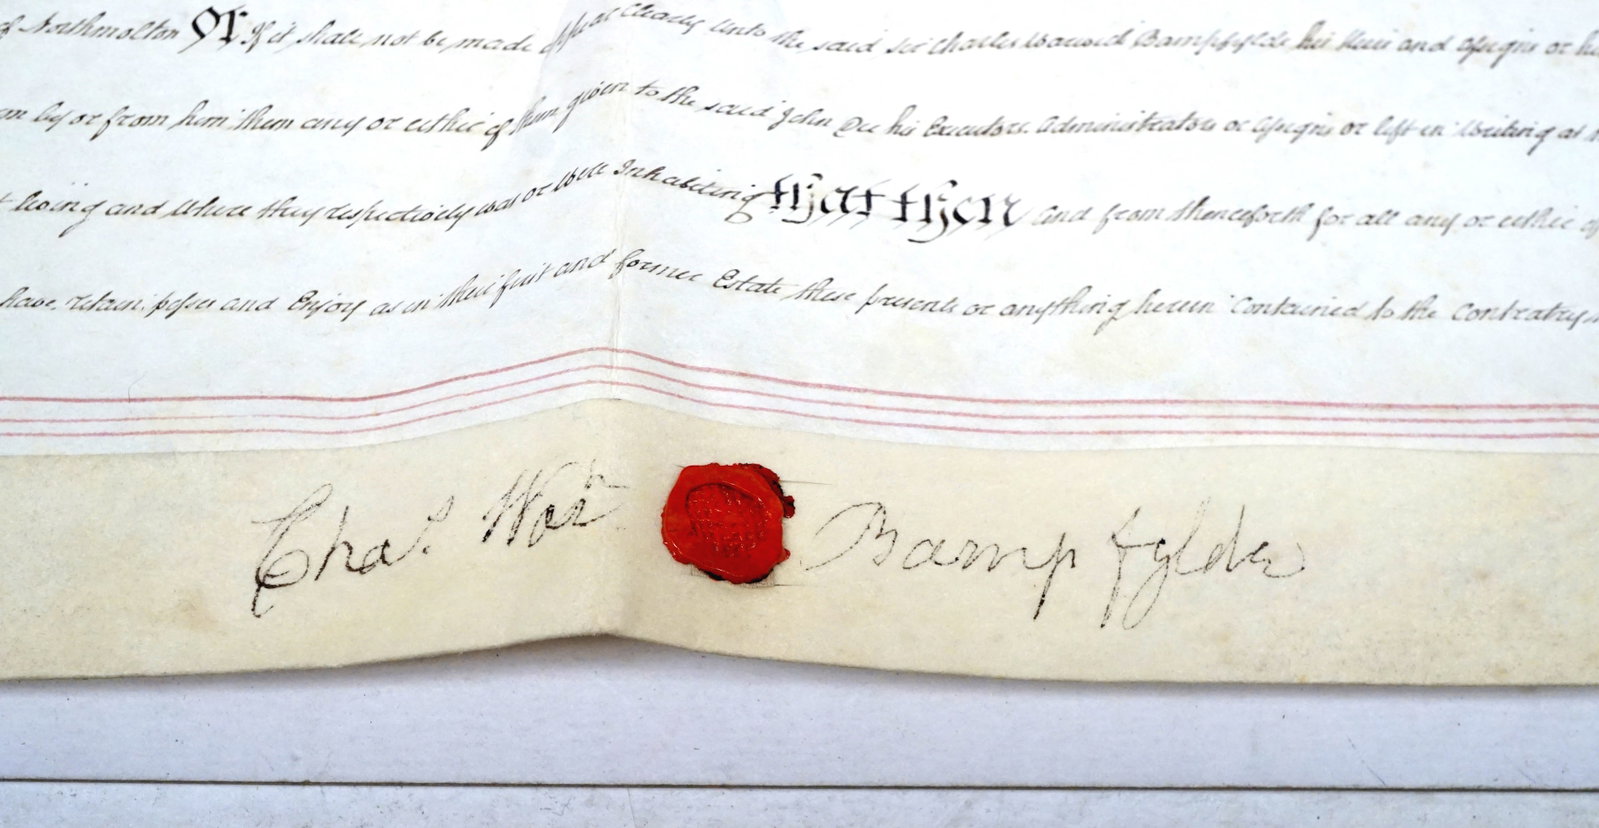 of Northmolton Or If it shall not be made Appear Clearly Unto the said Sir Charles Warwick Bampfylde his Heirs and Assigns or
by or from him them any or either of them given to the said John Dee his Executors Administrators or Assigns or left in Writing at
living and where they respectively was or were Inhabiting That then And from thenceforth for all any or either of
have retain possess and Enjoy as in their first and former Estate these presents or anything herein Contained to the Contrary
Chas. Wark Bampfylde